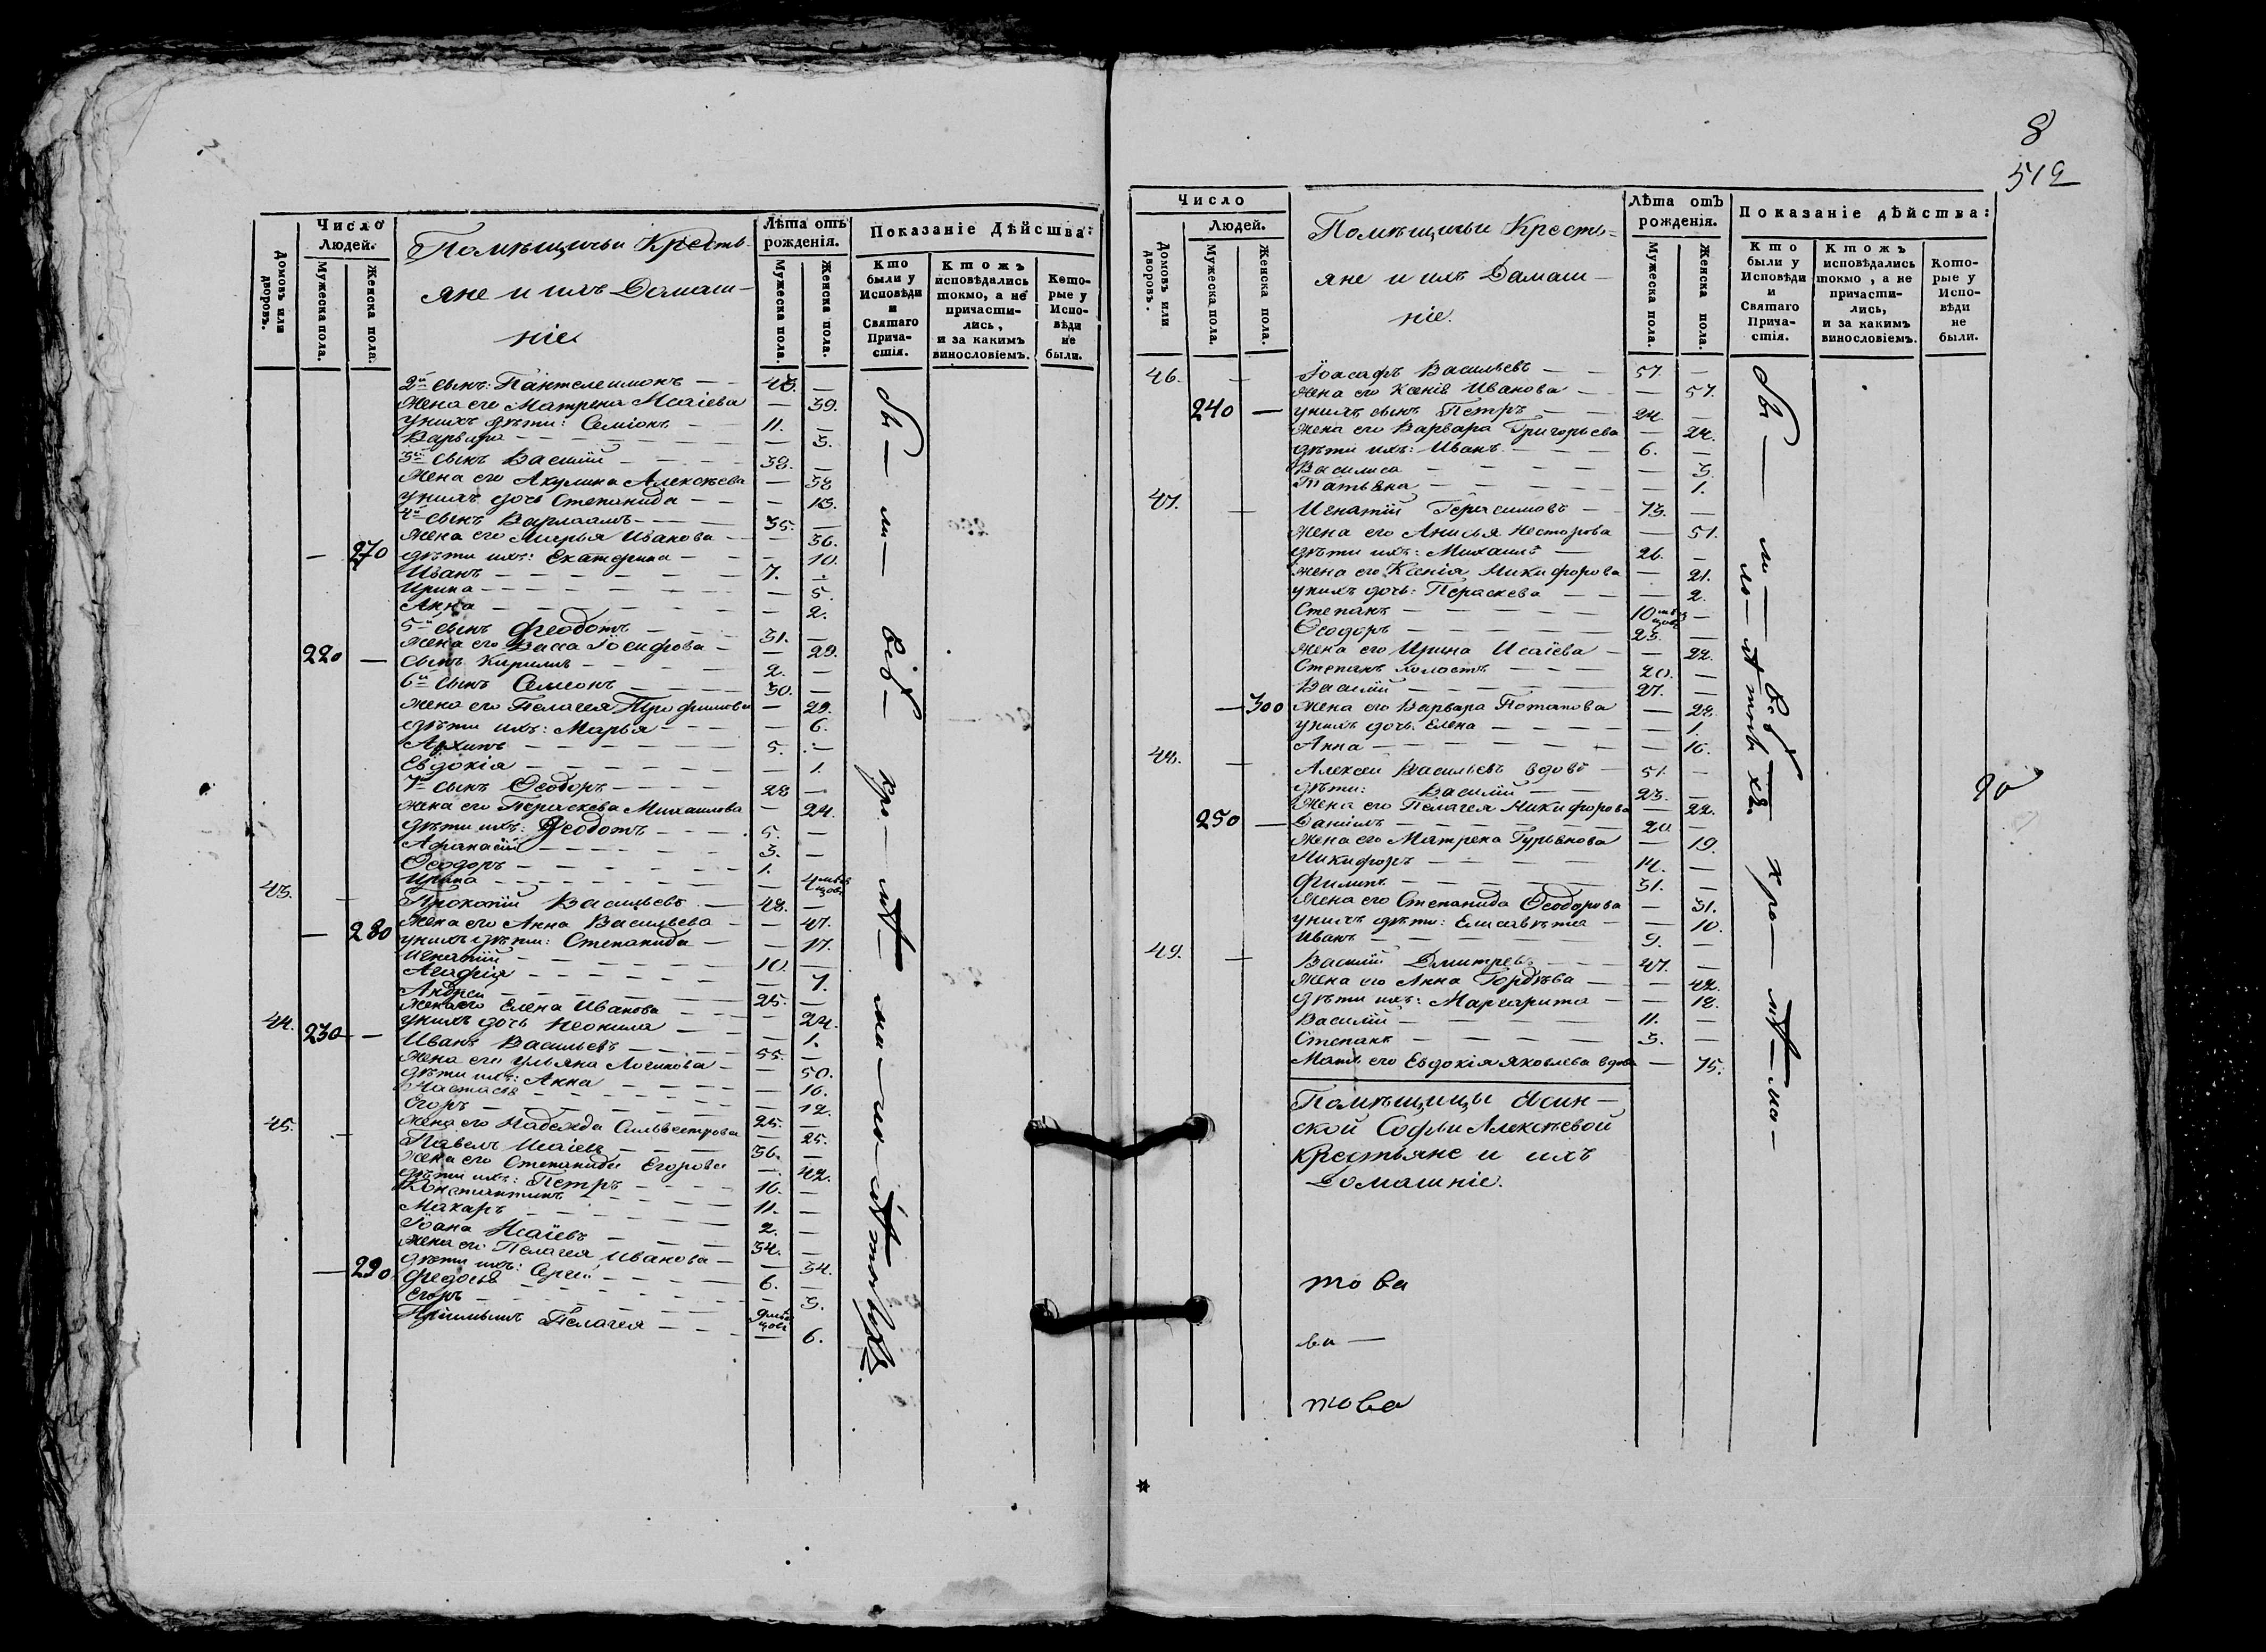 Число
Людей.
Домовъ или дворовъ.
Мужеска пола.
Женска пола.
Помѣщичьи Кресть-
яне и ихъ Домаш-
ніе
Лѣта отъ рожденія.
Мужеска пола.
Женска пола.
Показаніе Дѣйства:
Кто были у Исповѣди и Святаго Причастія.
Ктожъ исповѣдались токмо, а не причастились, и за какимъ винословіемъ.
Которые у Исповѣди не были.
2й сынъ: Пантелеимонъ — 43. —
жена его Матрена Исаіева — 39.
у нихъ дѣти: Семіонъ — 11. —
Варвара — — 3.
3й сынъ Василій — 38. —
жена его Акулина Алексѣева — 38
у нихъ дочь Степанида — — 13.
4й сынъ Варлаамъ — 35. —
жена его Марья Иванова — — 36.
— 270 дѣти ихъ: Екатерина — — 10.
Иванъ — 7. —
Ирина — — 5.
Анна — — 2.
5й сынъ Феодотъ — 31. —
жена его Васса Іосифова — — 29.
220 — сынъ Кирилъ — 2. —
6й сынъ Семіонъ — 30. —
жена его Пелагея — 29.
дѣти ихъ: Марья — — 6.
Архипъ — 5. —
Евдокія — — 1.
7й сынъ Ѳеодоръ — 28 —
жена его Параскева Михаилова — 24.
дѣти ихъ: Феодотъ — 5. —
Афанасій — 3. —
Ѳеодоръ — 1. —
Ирина — — 4 мѣсяцовъ
43. — Прокопій Васильевъ — 48. —
жена его Анна Васильева — — 47.
— 280 у нихъ дѣти: Степанида — — 17.
Игнатій — 10. —
Агафія — — 7.
Андрей — 25. —
жена его Елена Иванова — 24.
у нихъ дочь Неонила — — 1.
44. 230 — Иванъ Васильевъ — 55. —
жена его Ульяна Логинова — — 50.
дѣти ихъ: Анна — — 16.
Настасья — — 12.
Егоръ — 25. —
жена его Надежда Сильвестрова — 25.
45. — Павелъ Исаіевъ — 36. —
жена его Степанида Егорова — 42.
дѣти ихъ: Петръ — 16. —
Константинъ — 11. —
Макаръ — 2. —
Іоана Исаіевъ — 34. —
жена его Пелагея Иванова — — 34.
— 290 дѣти ихъ: Сергій — 6. —
Федосья — — 3.
Егоръ — 9 мѣсяцовъ
Пріимышъ Пелагея — — 6.
бы — ли — всѣ —
8
519
Число
Людей.
Домовъ или дворовъ.
Мужеска пола.
Женска пола.
Помѣщичьи Кресть=
яне и ихъ Домаш—
ніе.
Лѣта отъ рожденія.
Мужеска пола.
Женска пола.
Показаніе дѣйства:
Кто были у Исповѣди и Святаго Причастія.
Ктожъ исповѣдались токмо, а не причастились, и за какимъ винословіемъ.
Которые у Исповѣди не были.
46. — Іоасафъ Васильевъ — 57. —
жена его Ксенія Иванова — — 57.
240 — у нихъ сынъ Петръ — 24. —
жена его Варвара Григорьева — 24.
дѣти ихъ: Иванъ — 6. —
Василиса — — 3.
Татьяна — — 1.
47. — Игнатій Герасимовъ — 73. —
жена его Анисья Несторова — 51.
дѣти ихъ: Михаилъ — 26. —
жена его Ксенія Никифорова — 21.
у нихъ дочь: Параскева — — 2.
Степанъ — 10 мѣсяцовъ —
Ѳеодоръ — 23. —
жена его Ирина Исаіева — — 22.
Степанъ холостъ — 20. —
Василій — 27. —
— 300 жена его Варвара Потапова — 28.
у нихъ дочь Елена — — 1.
Анна — — 16.
48. — Алексѣй Васильевъ вдовъ — 51. —
дѣти: Василій — 23. —
жена его Пелагея Никифорова — 22.
250 — Даніилъ — 20 —
жена его Матрена Гурьянова — 19.
Никифоръ — 14. —
Филипъ — 31. —
жена его Степанида Ѳеодорова — 31.
у нихъ дѣти: Елисавѣта — — 10.
Иванъ — 9. —
49. — Василій Дмитревъ — 47. —
жена его Анна Гордѣева — — 42.
дѣти ихъ: Маргарита — — 18.
Василій — 11. —
Степанъ — 3. —
Мать его Евдокія Яковлева вдова — 75.
Помѣщицы
ской Софьи Алексѣевой
крестьяне и ихъ
Домашніе.
това
ва —
това
бы — ли — всѣ